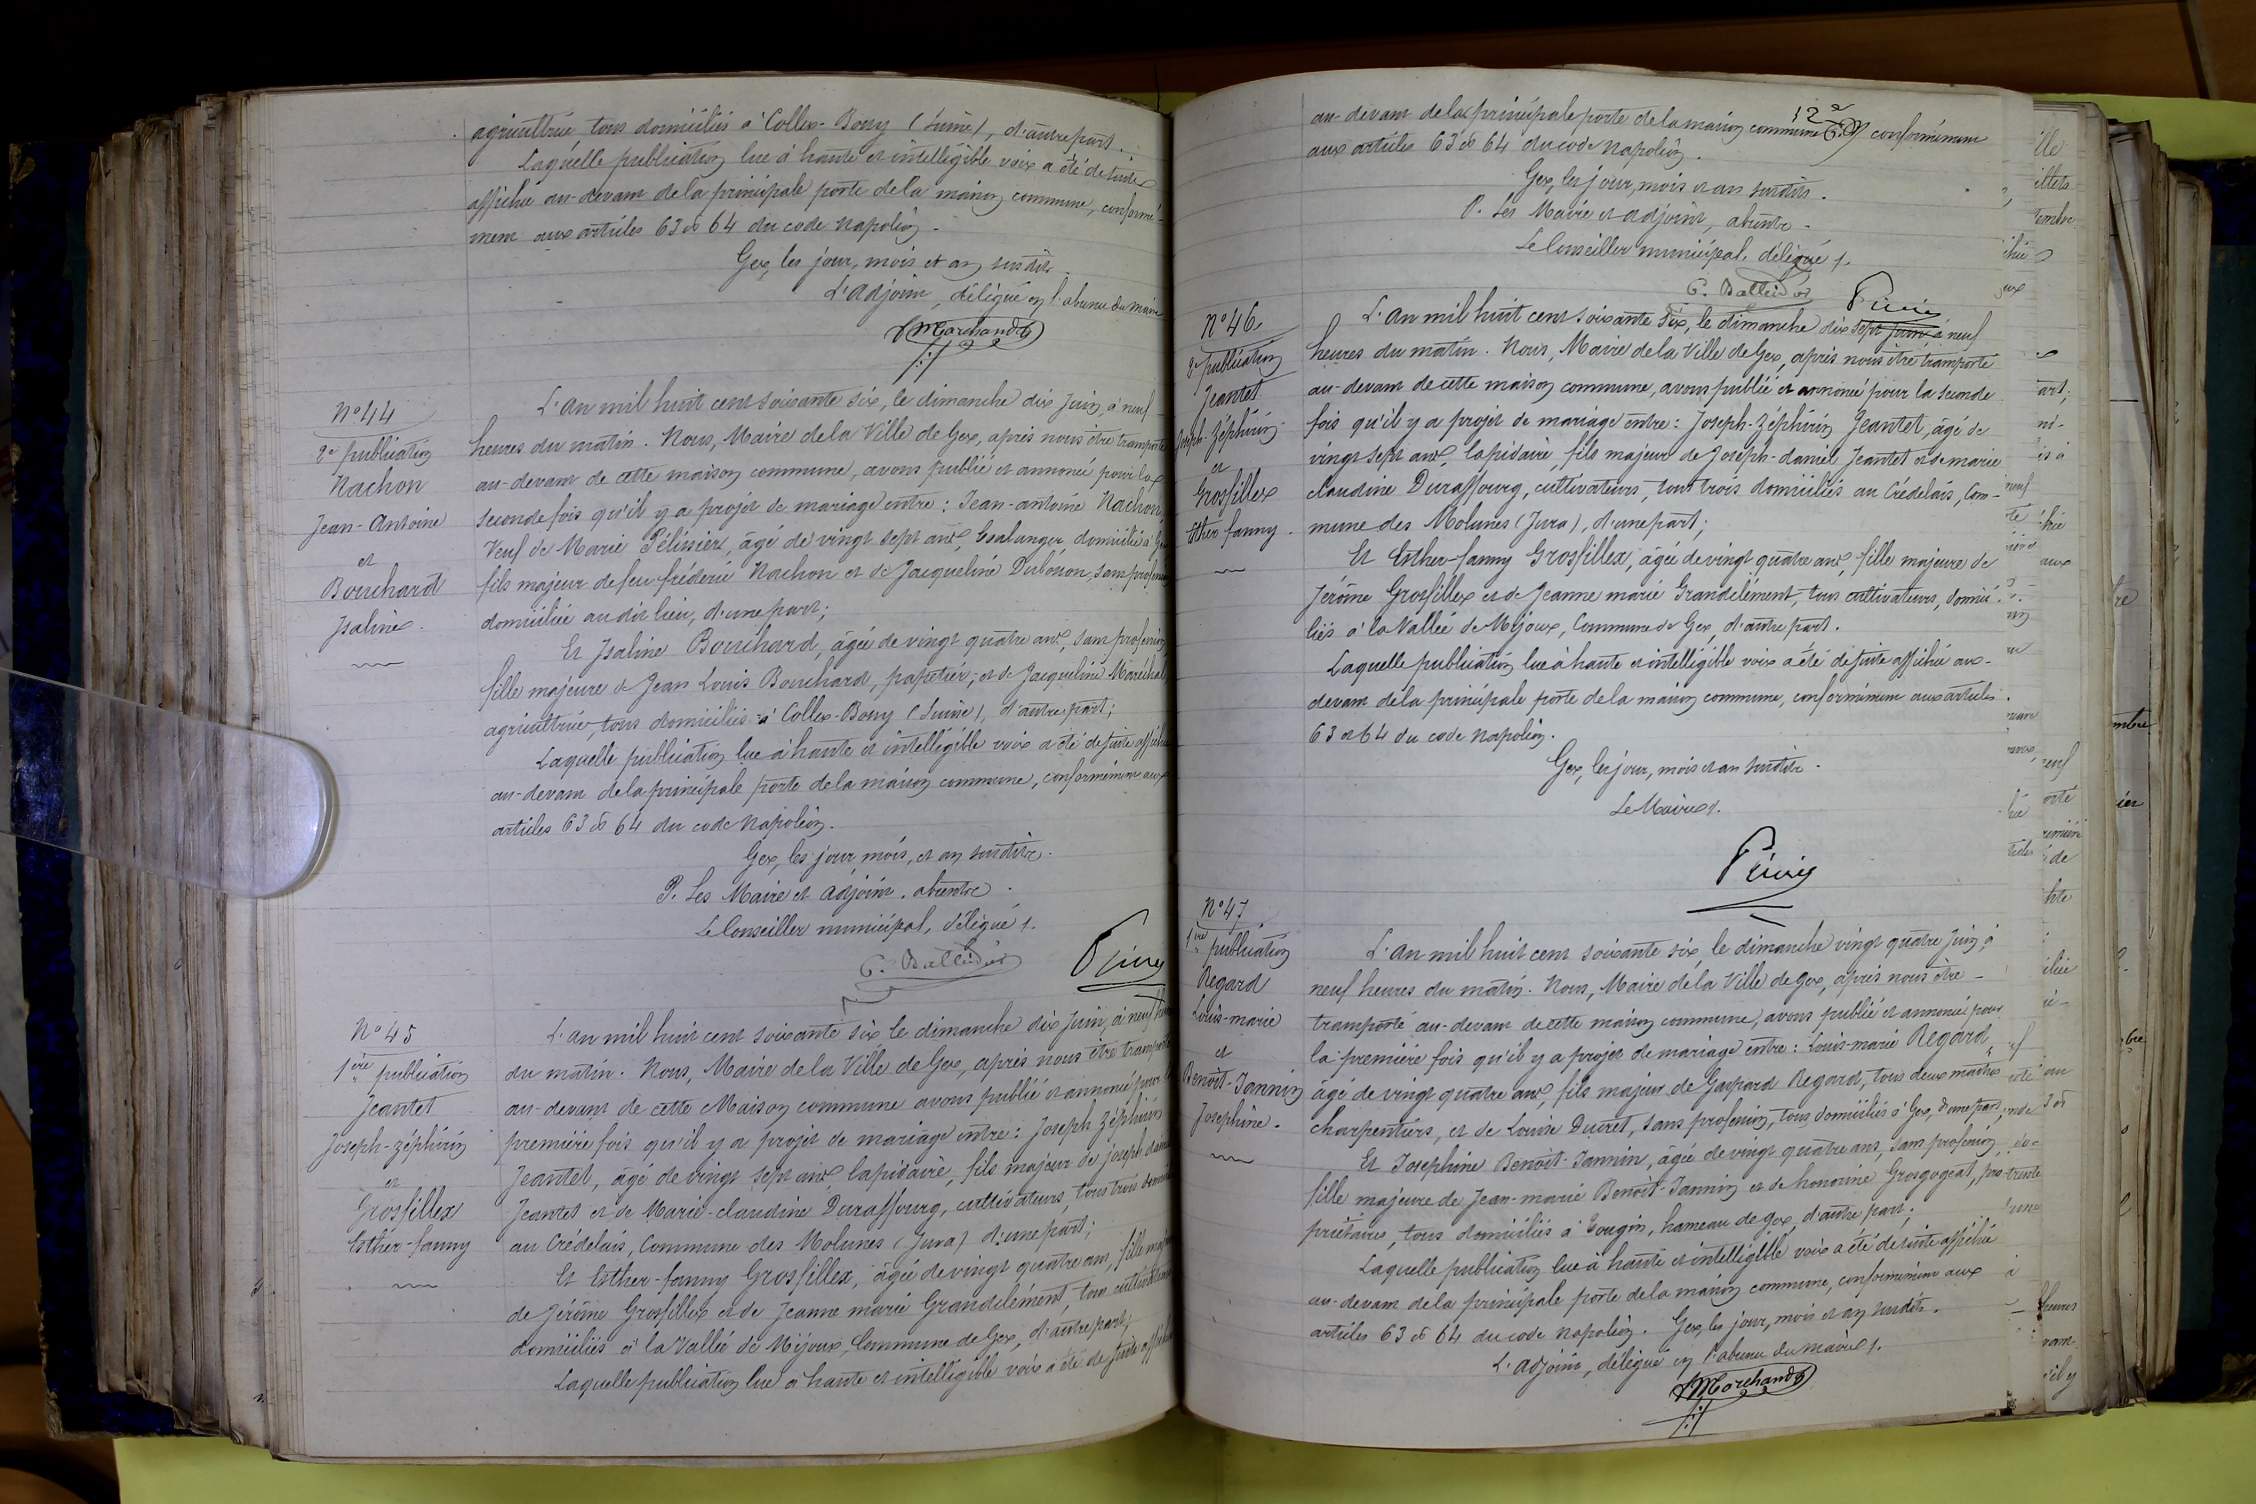 agricultrice, tous domiciliés à Collex-Bossy (Suisse), d'autre part.
Laquelle publication lue à haute et intelligible voix a été de suite
affichée au-devant de la principale porte de la maison commune, conformé-
ment aux articles 63 et 64 du code Napoléon.
Gex, les jour, mois et an susdits.
L'adjoint, délégué en l'absence du maire
Marchand
N° 44
2e publication
Nachon
Jean-Antoine
et
Bouchard
Isaline.
L'an mil huit cent soixante six, le dimanche dix Juin, à neuf
heures du matin. Nous, Maire de la Ville de Gex, après nous être transporté
au-devant de cette maison commune, avons publié et annoncé pour la
seconde fois qu'il y a projet de mariage entre : Jean-antoine Nachon,
Veuf de Marie Pélissier, âgé de vingt sept ans, boulanger, domicilié à Gex
fils majeur de feu frédéric Nachon et de Jacqueline Duboson, sans profession
domiciliée au dit lieu, d'une part;
Et Isaline Bouchard, âgée de vingt quatre ans, sans profession,
fille majeure de Jean Louis Bouchard, papetier, et de Jacqueline Maréchal,
agricultrice, tous domiciliés à Collex-Bossy (Suisse), d'autre part;
Laquelle publication lue à haute et intelligible voix a été de suite affichée
au-devant de la principale porte de la maison commune, conformément aux
articles 63 et 64 du code Napoléon.
Gex, les jour, mois, et an susdits.
P. Les Maire et adjoint, absents
Le Conseiller municipal, délégué
N° 45
1ère publication
Jeantet
Joseph-zéphirin
et
Grosfillex
Esther-fanny
L'an mil huit cent soixante six le dimanche dix Juin, à neuf heures
du matin. Nous, Maire de la Ville de Gex, après nous être transporté
au-devant de cette Maison commune avons publié et annoncé pour la
première fois qu'il y a projet de mariage entre : Joseph Zéphirin
Jeantet, âgé de vingt sept ans, lapidaire, fils majeur de joseph daniel
Jeantet et de Marie-claudine Duraffourg, cultivateurs, tous trois domiciliés
au Crédelais, Commune des Molunes (Jura) d'une part;
Et Esther-fanny Grosfillex, âgée de vingt quatre ans, fille majeure
de Jérôme Grosfillex et de Jeanne marie Grandclément, tous cultivateurs
domiciliés à la Vallée de Mijoux, Commune de Gex, d'autre part;
Laquelle publication lue à haute et intelligible voix a été de suite affichée
au-devant de la principale porte de la maison commune conformément
aux articles 63 et 64 du code Napoléon.
Gex, les jour, mois et an susdits.
P. Les Maire et adjoint, absents.
Le Conseiller municipal, délégué
N° 46
2e publication
Jeantet
Joseph-Zéphirin
et
Grosfillex
Esther fanny.
L'an mil huit cent soixante six, le dimanche dix sept juin à neuf
heures du matin. Nous, Maire de la Ville de Gex, après nous être transporté
au-devant de cette maison commune, avons publié et annoncé pour la seconde
fois qu'il y a projet de mariage entre : Joseph-Zéphirin Jeantet, âgé de
vingt sept ans, lapidaire, fils majeur de Joseph-daniel Jeantet et de marie
claudine Duraffourg, cultivateurs, tous trois domiciliés au Crédelais, Com-
mune des Molunes (Jura), d'une part;
Et Esther-fanny Grosfillex, âgée de vingt quatre ans, fille majeure de
Jérôme Grosfillex et de Jeanne marie Grandclément, tous cultivateurs, domici-
liés à la Vallée de Mijoux, Commune de Gex, d'autre part.
Laquelle publication lue à haute et intelligible voix a été de suite affichée au-
devant de la principale porte de la maison commune, conformément aux articles
63 et 64 du code Napoléon.
Gex, les jour, mois et an susdits.
Le Maire
N° 47
1ère publication
Regard
Louis-marie
et
Benoît-Jannin
Josephine.
L'an mil huit cent soixante six, le dimanche vingt quatre Juin, à
neuf heures du matin. Nous, Maire de la Ville de Gex, après nous être
transporté au-devant de cette maison commune, avons publié et annoncé pour
la première fois qu'il y a projet de mariage entre : Louis-marie Regard,
âgé de vingt quatre ans, fils majeur de Gaspard Regard, tous deux maîtres
charpentiers, et de Louise Ducret, sans profession, tous domiciliés à Gex, d'une part,
Et Josephine Benoît-Jannin, âgée de vingt quatre ans, sans profession,
fille majeure de Jean-marie Benoît-Jannin et de honorine Grosgogeat, pro-
priétaires, tous domiciliés à Tougin, hameau de gex, d'autre part;
Laquelle publication lue à haute et intelligible voix a été de suite affichée
au-devant de la principale porte de la maison commune, conformément aux
articles 63 et 64 du code Napoléon. Gex, les jour, mois et an susdits.
L'adjoint, délégué en l'absence du maire
Marchand